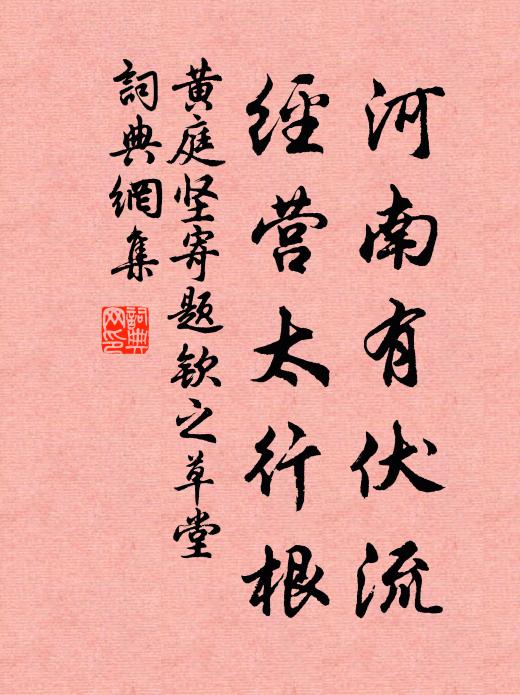 河南有伏流
經营太行根
黄庭坚寄题欽之草堂
詞典網集
詞典网印